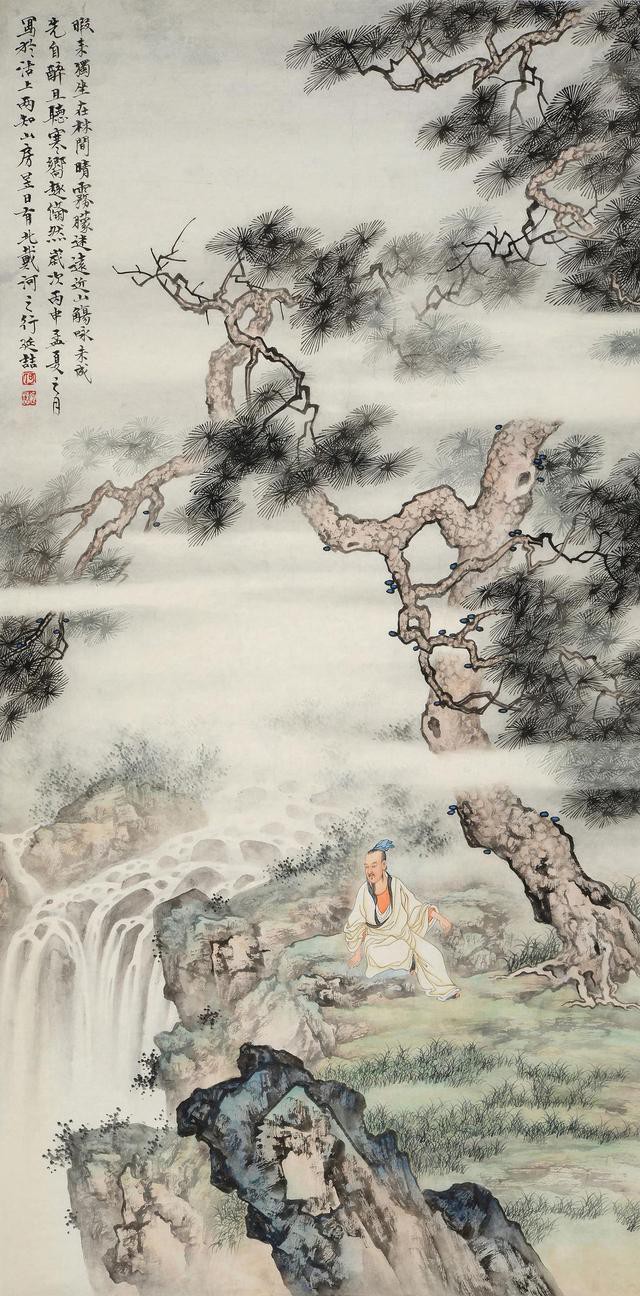 暇来獨坐在林間晴靄朦迷遠近山觴咏未成
先自醉且聽寒嚮趣翛然歲次丙申孟夏之月
寫於沽上雨知山房呈日有北戴河之行延喆